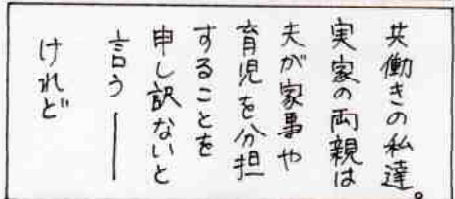 共働きの私達。
実家の両親は
夫が家事や
育児を分担
することを
申し訳ないと
言う――
けれど